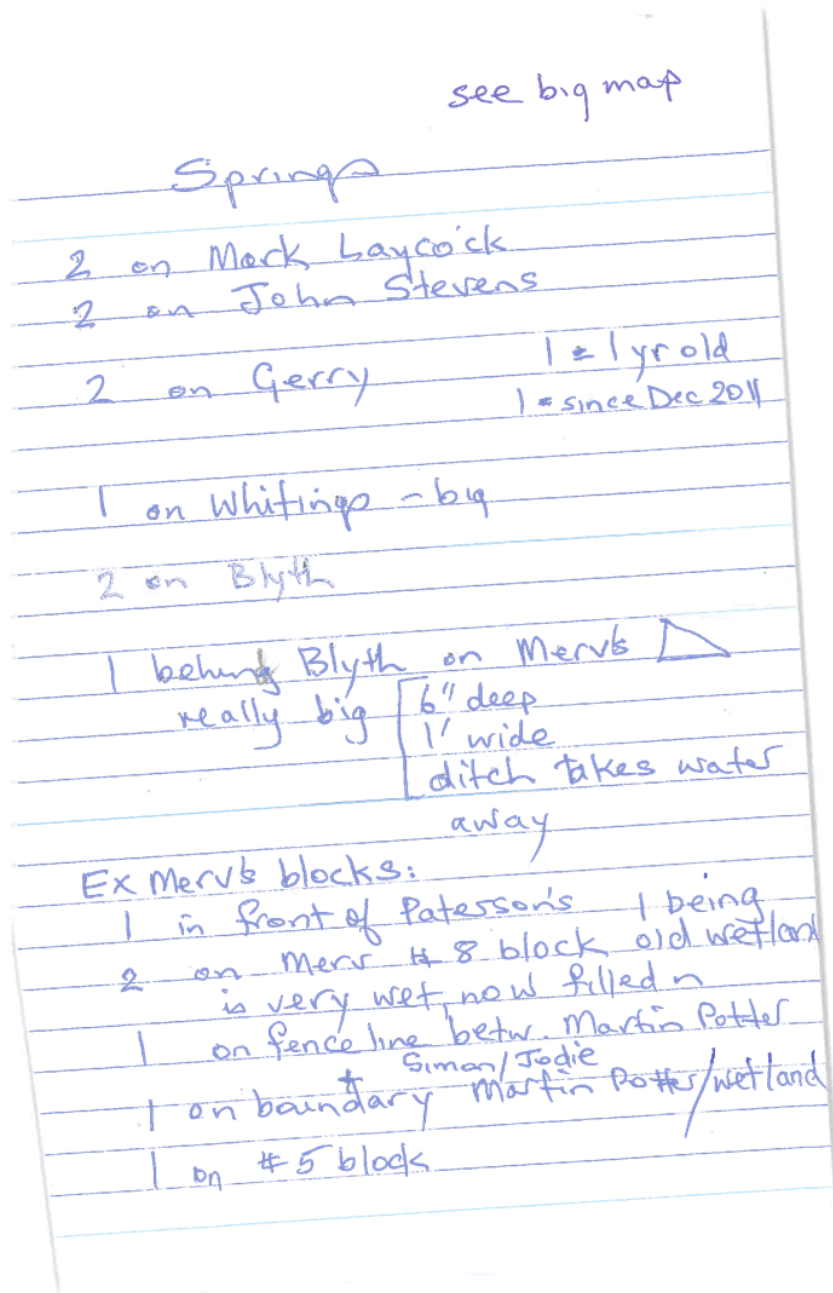 see big map
Springs
2 on Mark Laycock
2 on John Stevens
2 on Gerry 1 = 1 yr old
1 = since Dec 2011
1 on Whitings - big
2 on Blyth
1 behind Blyth on Merv's
really big 6" deep
1' wide
ditch takes water
away
Ex Merv's blocks:
1 in front of Paterson's 1 being
2 on Merv # 8 block old wetland
is very wet, now filled n
1 on fence line betw. Martin Potter
+ Simon/Jodie
1 on boundary Martin Potter/wetland
1 on #5 block